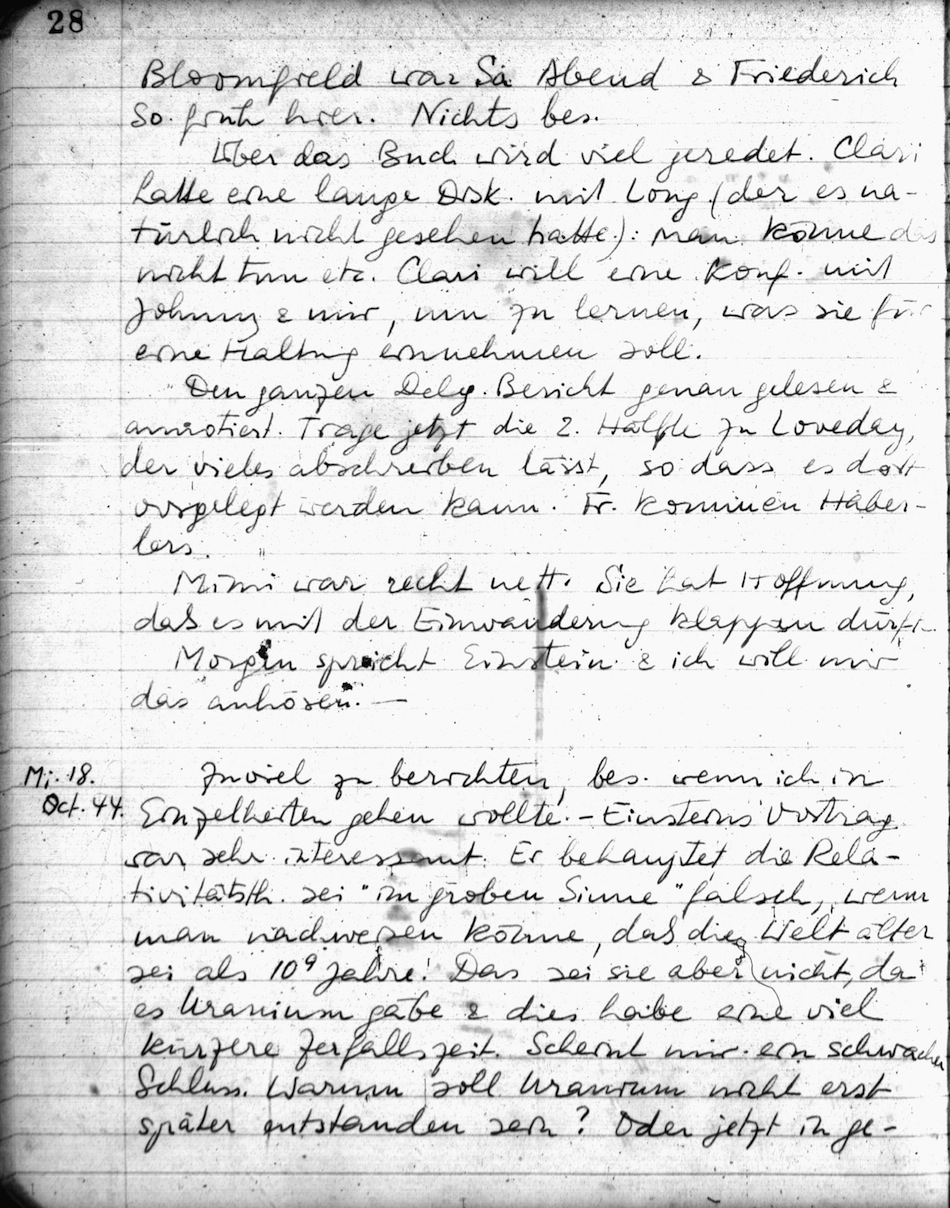 28
Bloomfield war Sa Abend & Friederich
So. früh hier. Nichts bes.
Über das Buch wird viel geredet. Clari
hatte eine lange Disk. mit Long (der es na-
türlich nicht gesehen hatte): man könne das
nicht tun etc. Clari will eine Konf. mit
Johnny & mir, um zu lernen, was sie für
eine Haltung einnehmen soll.
Den ganzen Deleg. Bericht genau gelesen &
annotiert. Trage jetzt die 2. Hälfte zu Loveday,
der vieles abschreiben lässt, so dass es dort
vorgelegt werden kann. Fr. kommen Haber-
lers.
Mimi war recht nett. Sie hat Hoffnung,
daß es mit der Einwanderung klappen dürfte.
Morgen spricht Einstein & ich will mir
das anhören. —
Mi. 18. Zuviel zu berichten, bes. wenn ich in
Oct. 44. Einzelheiten gehen wollte. – Einsteins Vortrag
war sehr interessant. Er behauptet, die Rela-
tivitätsth. sei "im groben Sinne" falsch, wenn
man nachweisen könne, daß die Welt älter
sei als 10⁹ Jahre! Das sei sie aber nicht, da
es Uranium gäbe & dies habe eine viel
kürzere Zerfallszeit. Scheint mir ein schwacher
Schluss. Warum soll Uranium nicht erst
später entstanden sein? Oder jetzt in ge-